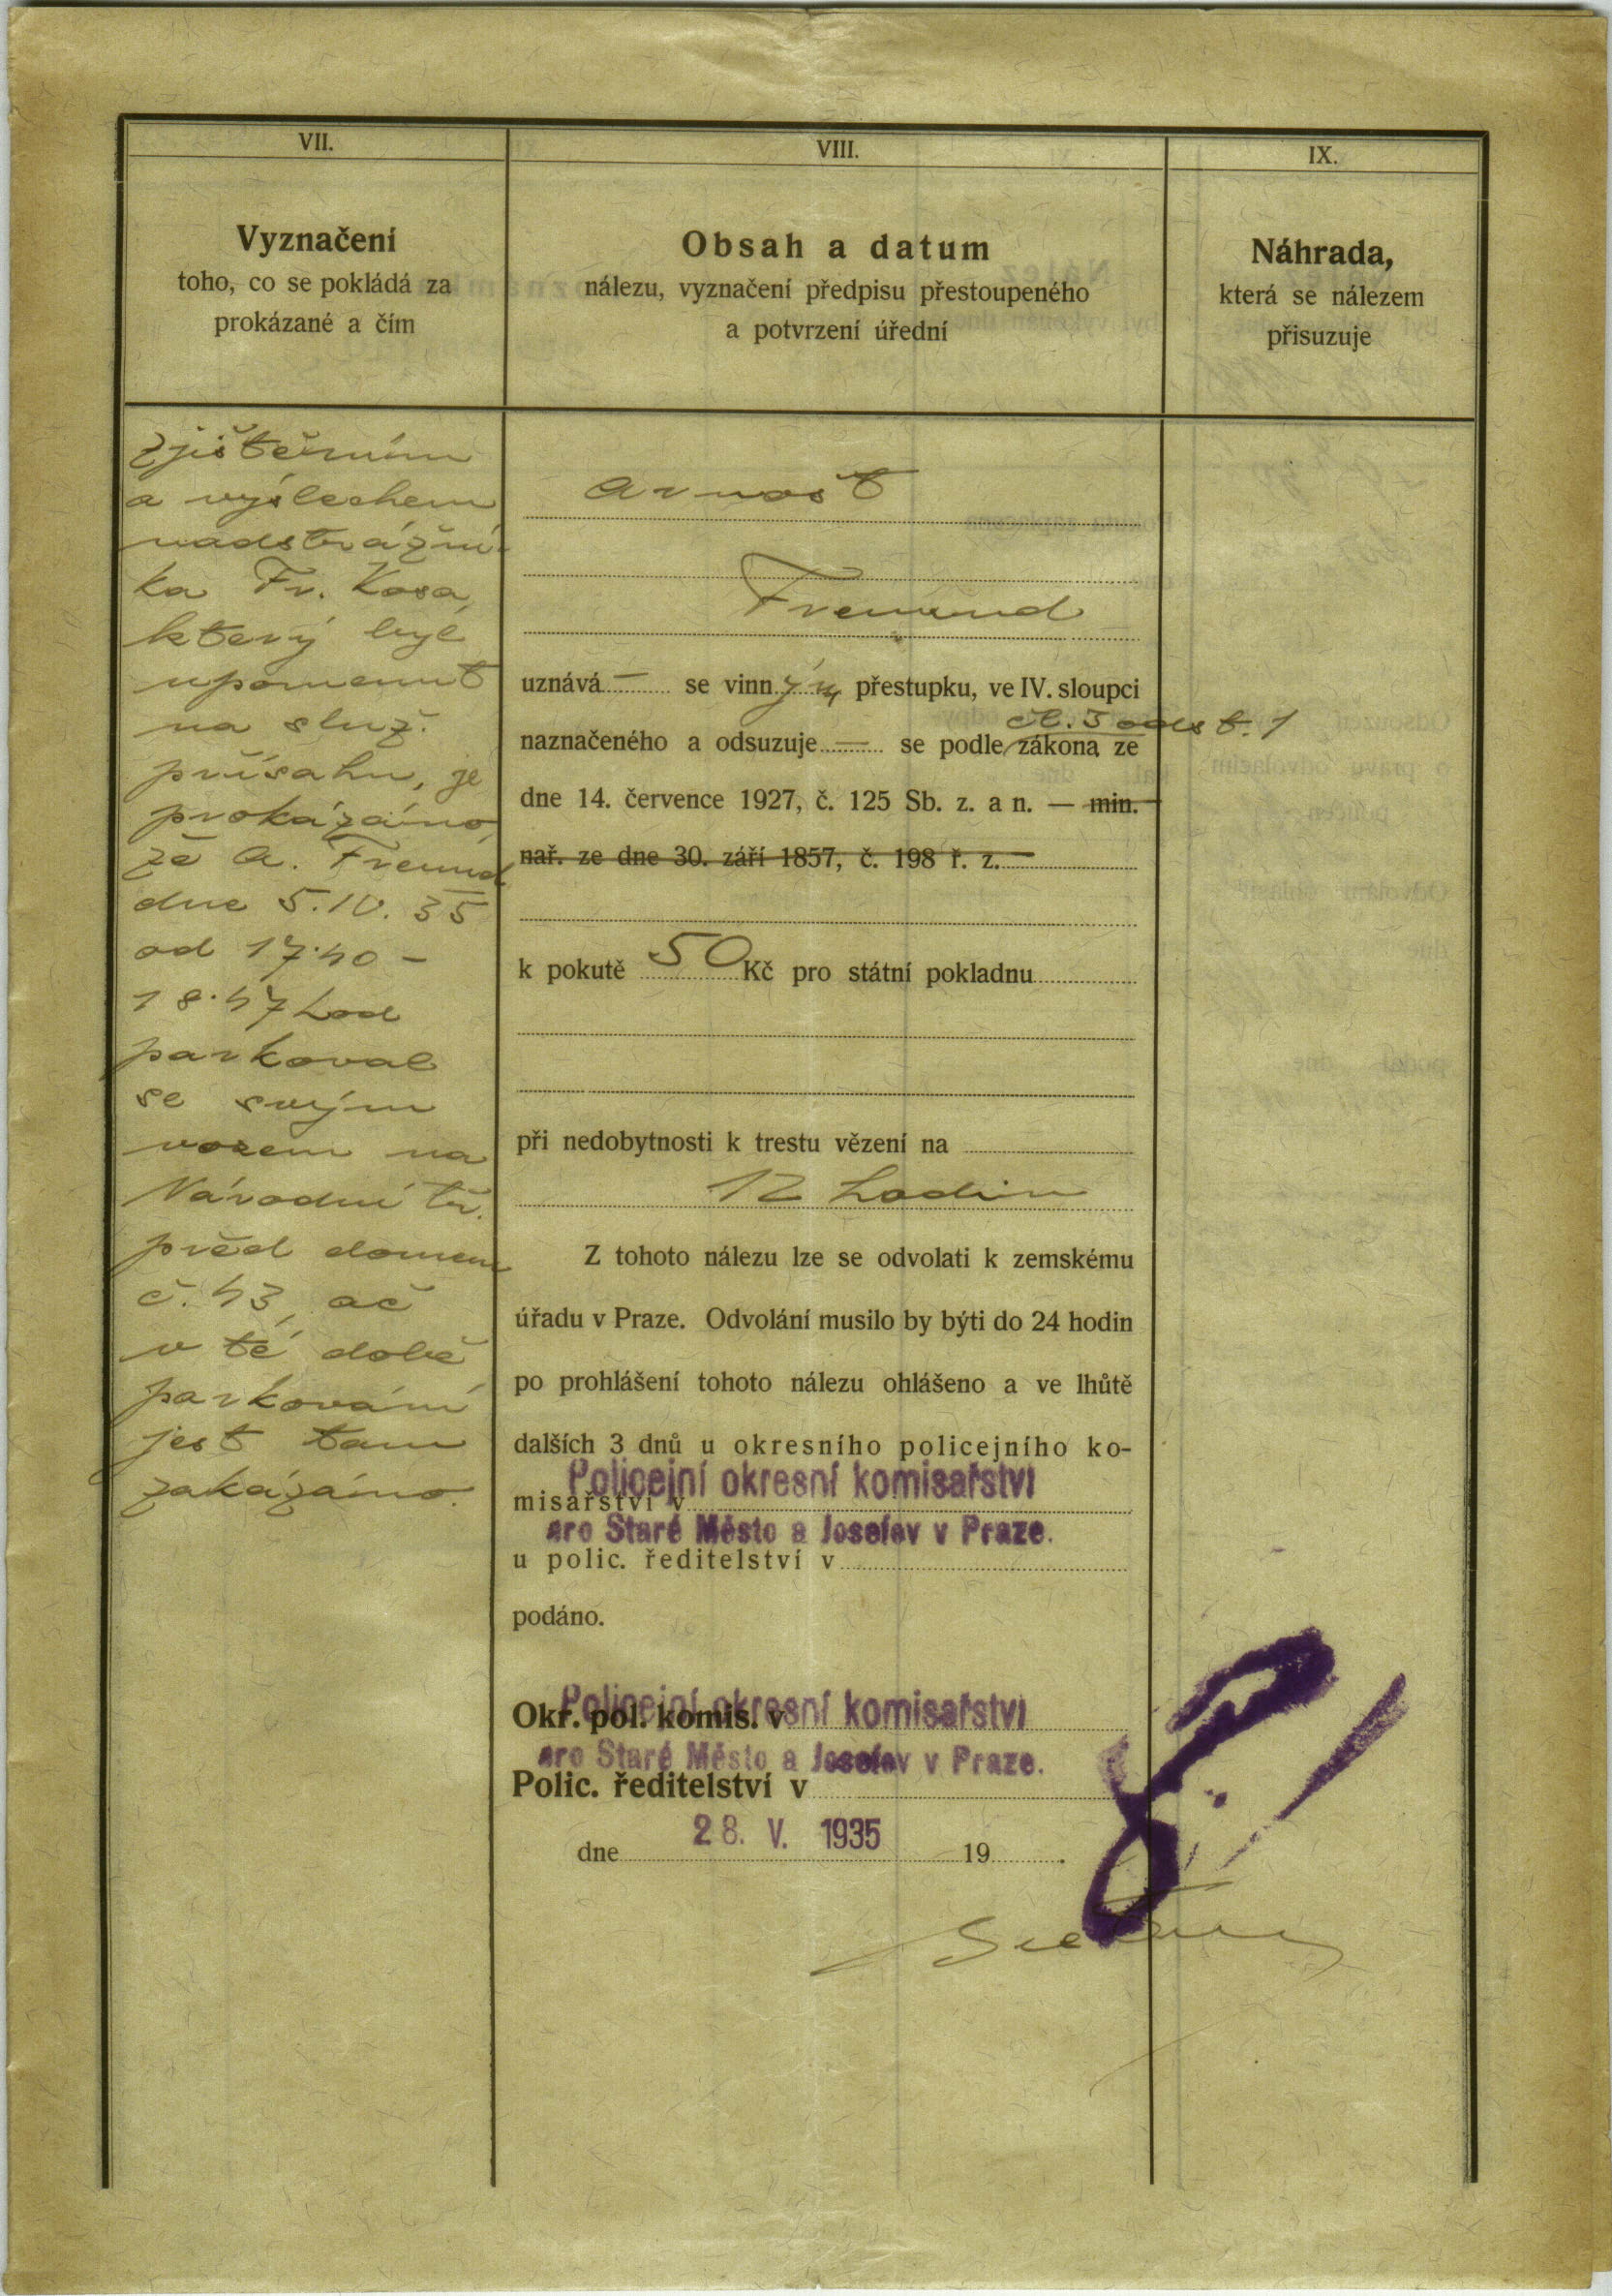 VII.
Vyznačení
toho, co se pokládá za
prokázané a čím
zjištěním
a výslechem
nadstrážní-
ka Fr. Kosa,
který byl
upomenut
na služ.
přísahu, je
prokázáno
že A. Freund
dne 5.IV.35
od 17·40 -
18·47 hod
parkoval
se svým
vozem na
Národní tř.
před domem
č. 43, ač
v té době
parkování
jest tam
zakázáno.
VIII.
Obsah a datum
nálezu, vyznačení předpisu přestoupeného
a potvrzení úřední
Arnošt
Freund
uznává — se vinným přestupku, ve IV. sloupci
čl. 3 odst. 1
naznačeného a odsuzuje — se podle zákona ze
dne 14. července 1927, č. 125 Sb. z. a n. — min.
nař. ze dne 30. září 1857, č. 198 ř. z.
k pokutě 50 Kč pro státní pokladnu
při nedobytnosti k trestu vězení na
12 hodin
Z tohoto nálezu lze se odvolati k zemskému
úřadu v Praze. Odvolání musilo by býti do 24 hodin
po prohlášení tohoto nálezu ohlášeno a ve lhůtě
dalších 3 dnů u okresního policejního ko-
Policejní okresní komisařství
misařství v
pro Staré Město a Josefov v Praze.
u polic. ředitelství v
podáno.
Policejní okresní komisařství
Okř. pol. komis. v
pro Staré Město a Josefov v Praze.
Polic. ředitelství v
dne 28. V. 1935 19 .
IX.
Náhrada,
která se nálezem
přisuzuje